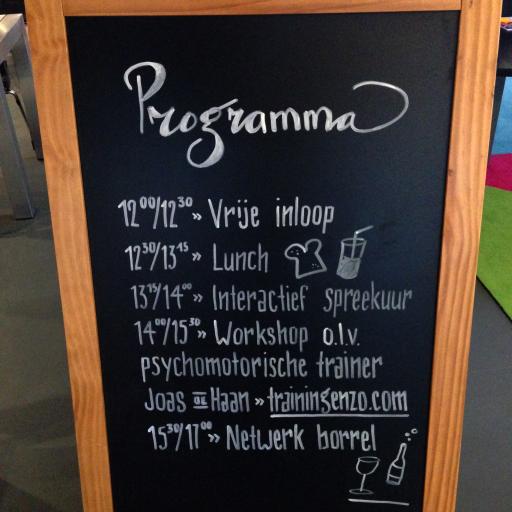 Programma
12⁰⁰/12³⁰ » Vrije inloop
12³⁰/13¹⁵ » Lunch
13¹⁵/14⁰⁰ » Interactief spreekuur
14⁰⁰/15³⁰ » Workshop o.l.v.
psychomotorische trainer
Joas de Haan » trainingenzo.com
15³⁰/17⁰⁰ » Netwerk borrel